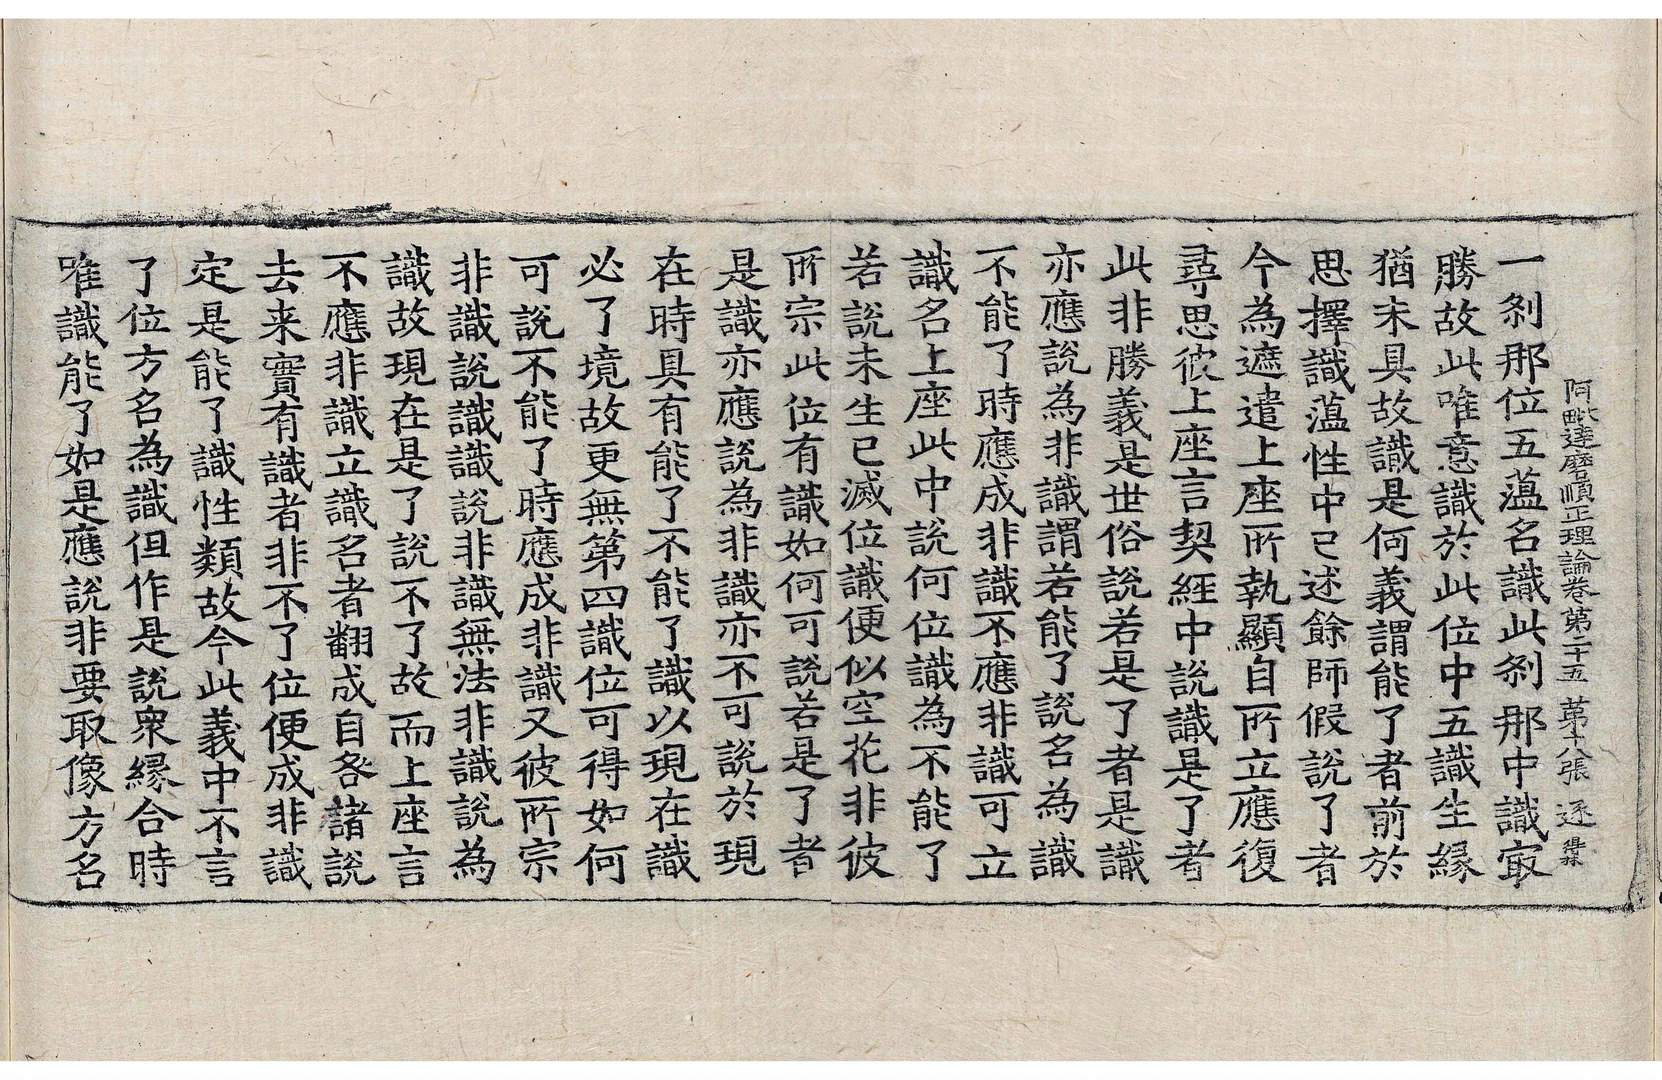 阿毗達磨順正理論卷第二十五 第十八張 逐
一剎那位五薀名識此剎那中識㝡
勝故此唯意識於此位中五識生緣
猶未具故識是何義謂能了者前於
思擇識薀性中已述餘師假說了者
今為遮遣上座所執顯自所立應復
尋思彼上座言契經中說識是了者
此非勝義是世俗說若是了者是識
亦應說為非識謂若能了說名為識
不能了時應成非識不應非識可立
識名上座此中說何位識為不能了
若說未生已滅位識便似空花非彼
所宗此位有識如何可說若是了者
是識亦應說為非識亦不可說於現
在時具有能了不能了識以現在識
必了境故更無第四識位可得如何
可說不能了時應成非識又彼所宗
非識說識識說非識無法非識說為
識故現在是了說不了故而上座言
不應非識立識名者翻成自咎諸說
去来實有識者非不了位便成非識
定是能了識性類故今此義中不言
了位方名為識但作是說衆緣合時
唯識能了如是應說非要取像方名